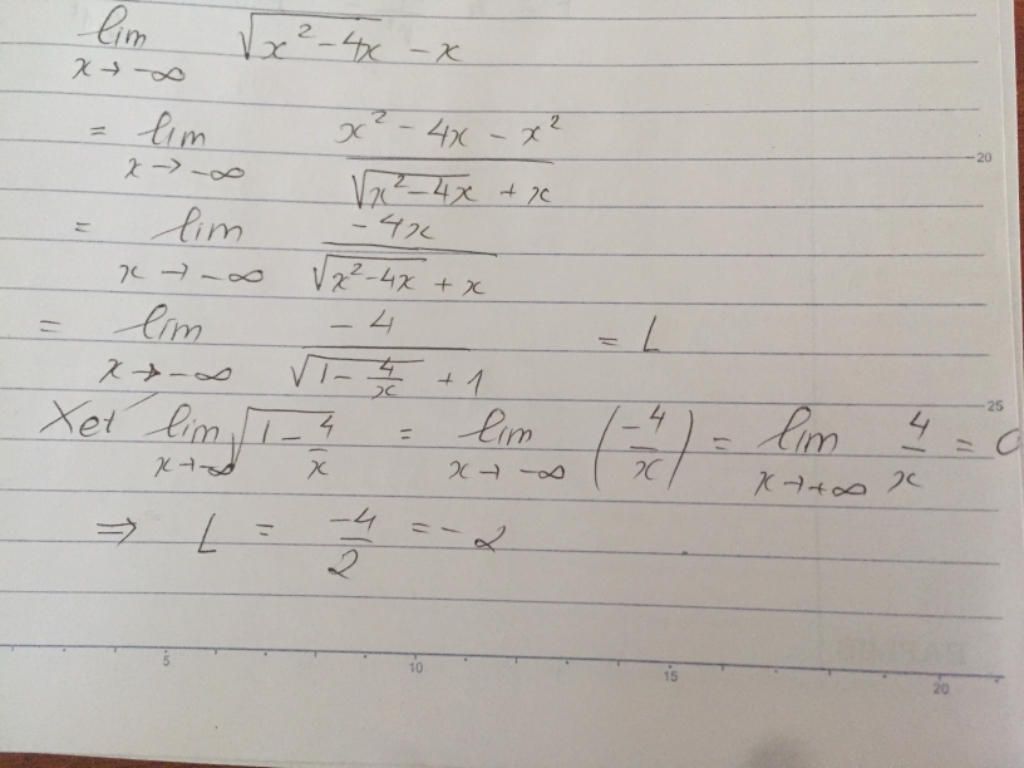 lim x→-∞ √(x² - 4x) - x
= lim x→-∞ (x² - 4x - x²)/(√(x² - 4x) + x)
= lim x→-∞ (-4x)/(√(x² - 4x) + x)
= lim x→-∞ (-4)/(√(1 - 4/x) + 1) = L
Xét lim x→-∞ √(1 - 4/x) = lim x→-∞ (-4/x) = lim x→+∞ 4/x = 0
⇒ L = -4/2 = -2
20
25
5 10 15 20